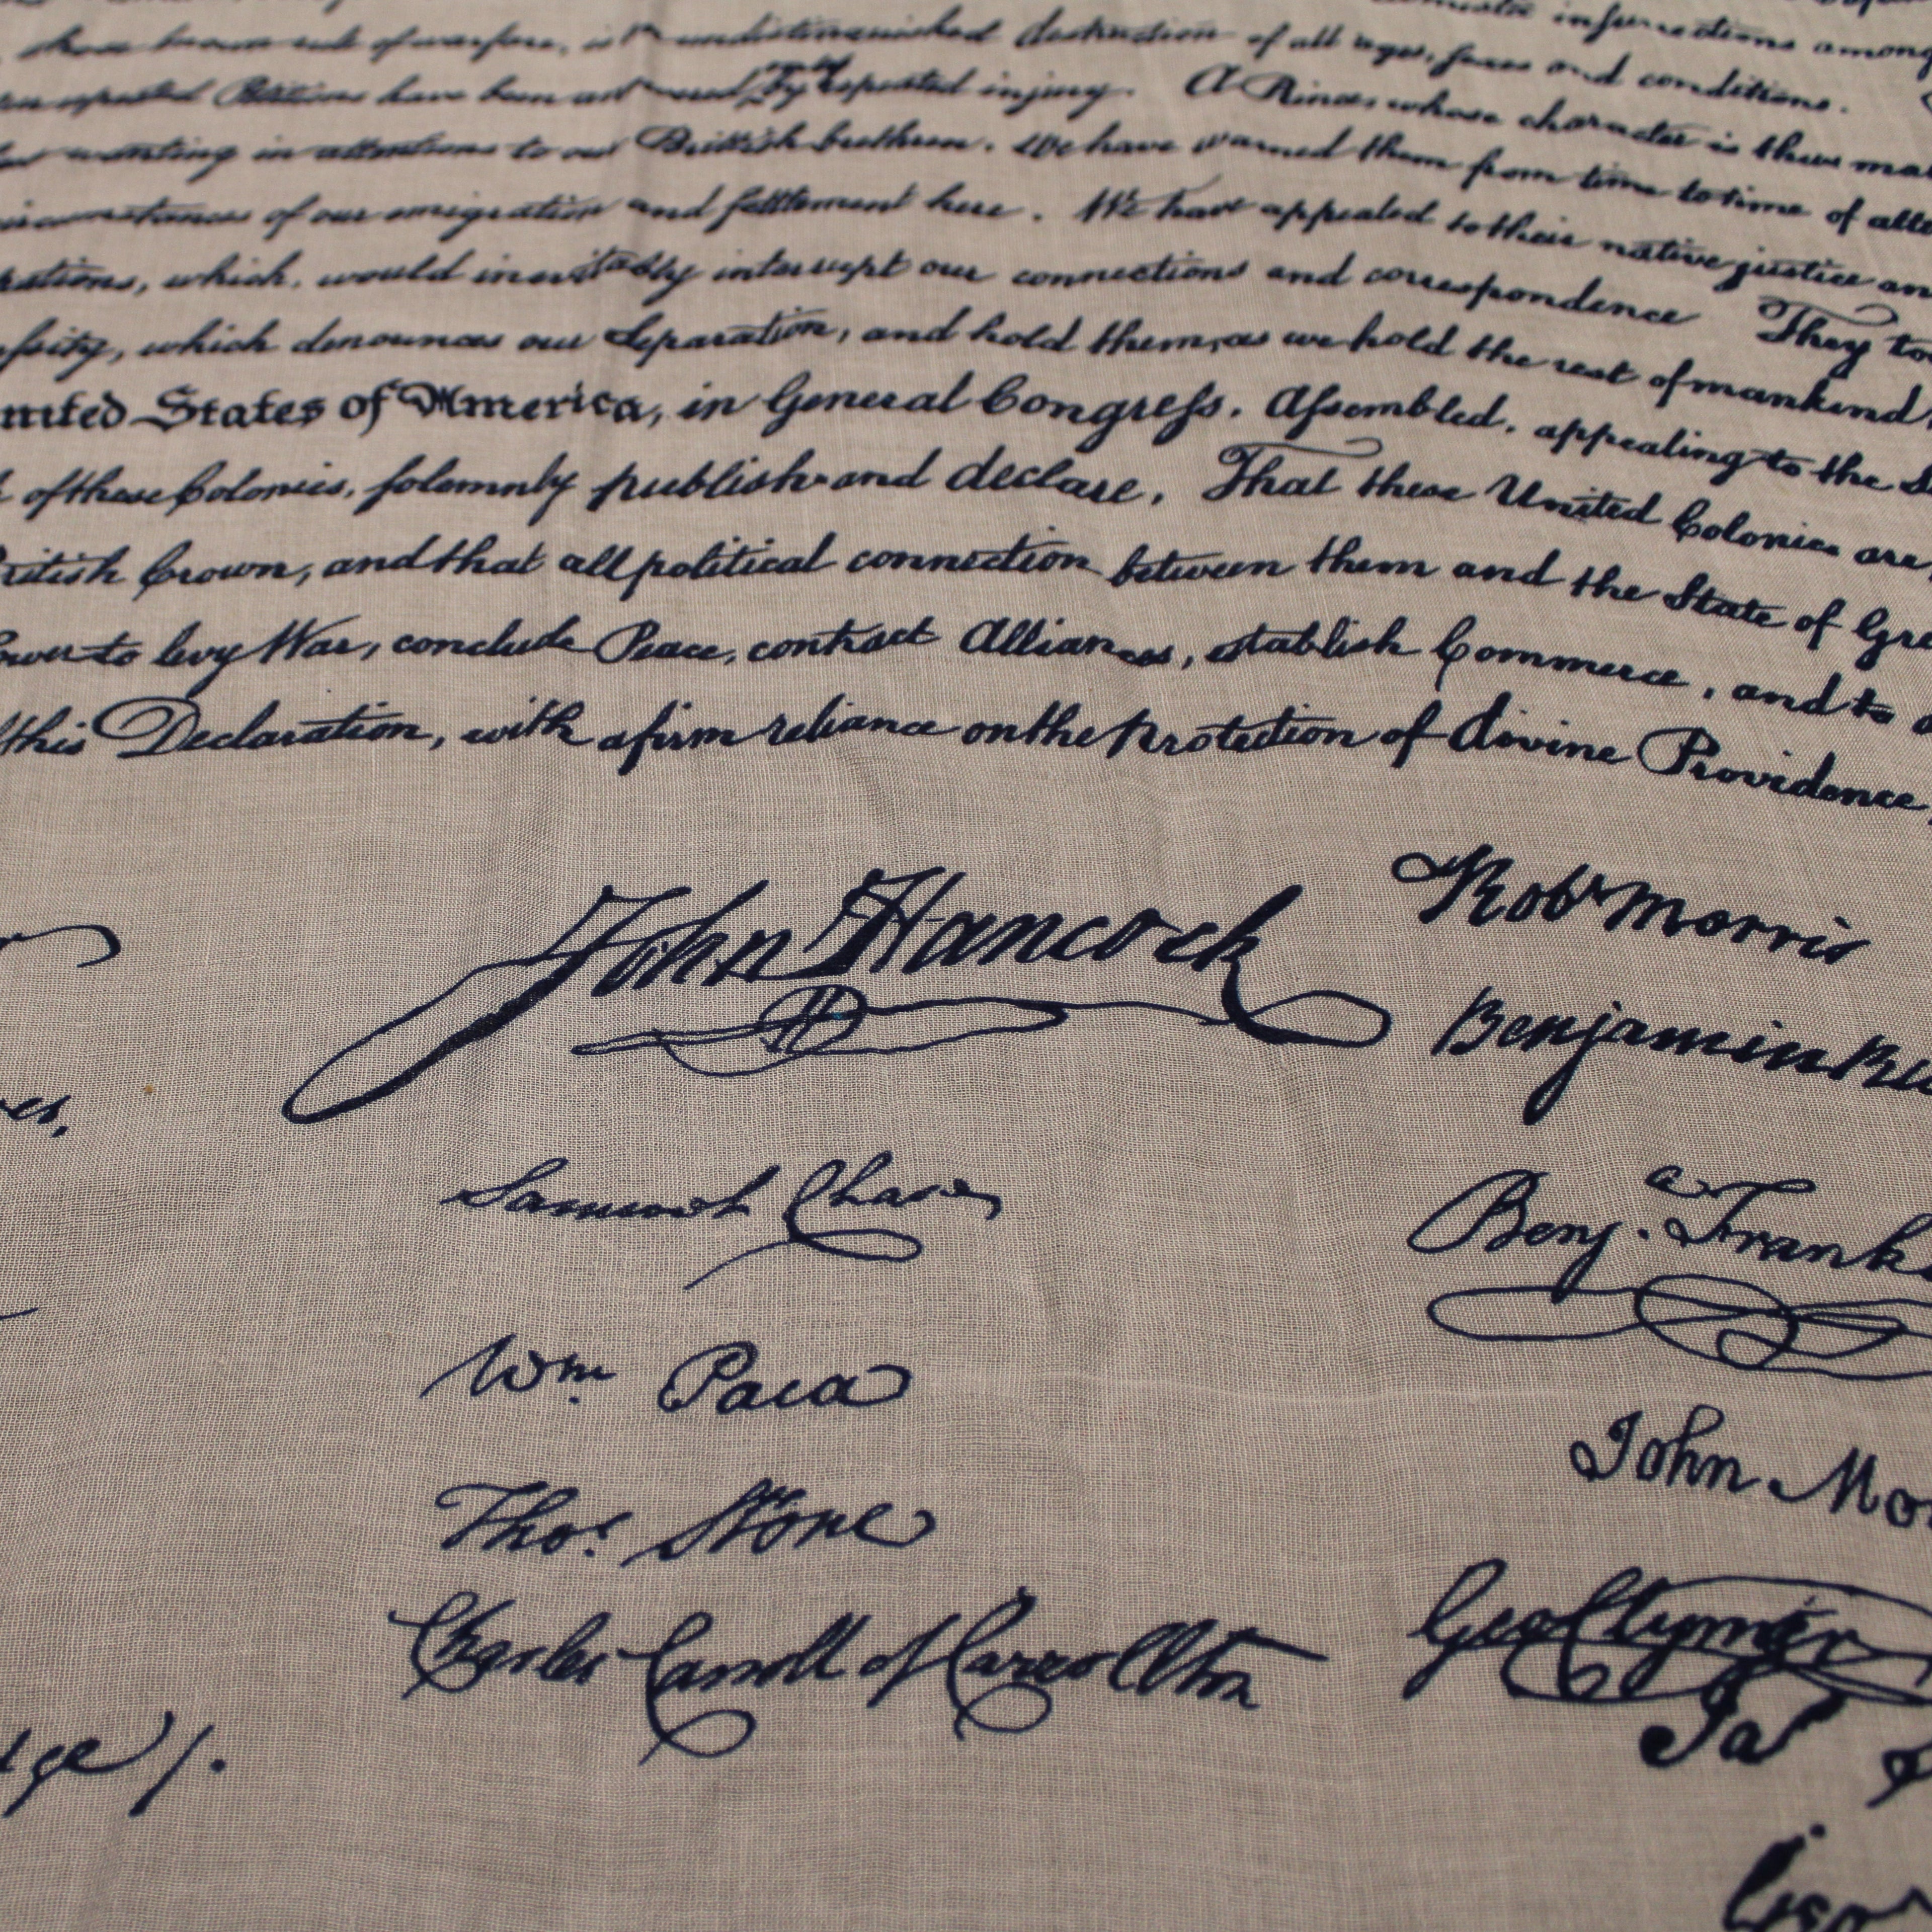 insurrections among
undistinguished destruction of all ages, sexes and conditions.
repeated Petitions have been answered by repeated injury. A Prince, whose character is thus mar
wanting in attentions to our Brittish brethren. We have warned them from time to time of atte
circumstances of our emigration and settlement here. We have appealed to their native justice an
rations, which, would inevitably interrupt our connections and correspondence They to
essity, which denounces our Separation, and hold them, as we hold the rest of mankind,
nited States of America, in General Congress, Assembled, appealing to the S
of these Colonies, solemnly publish and declare, That these United Colonies are,
ritish Crown, and that all political connection between them and the State of Gre
ower to levy War, conclude Peace, contract Alliances, establish Commerce, and to d
this Declaration, with a firm reliance on the protection of divine Providence,
John Hancock
Robt Morris
Benjamin Ru
Samuel Chase
Benja. Frank
Wm Paca
John Mo
Thos. Stone
Geo Clymer
Charles Carroll of Carrollton
Jas
dge /.
Geo